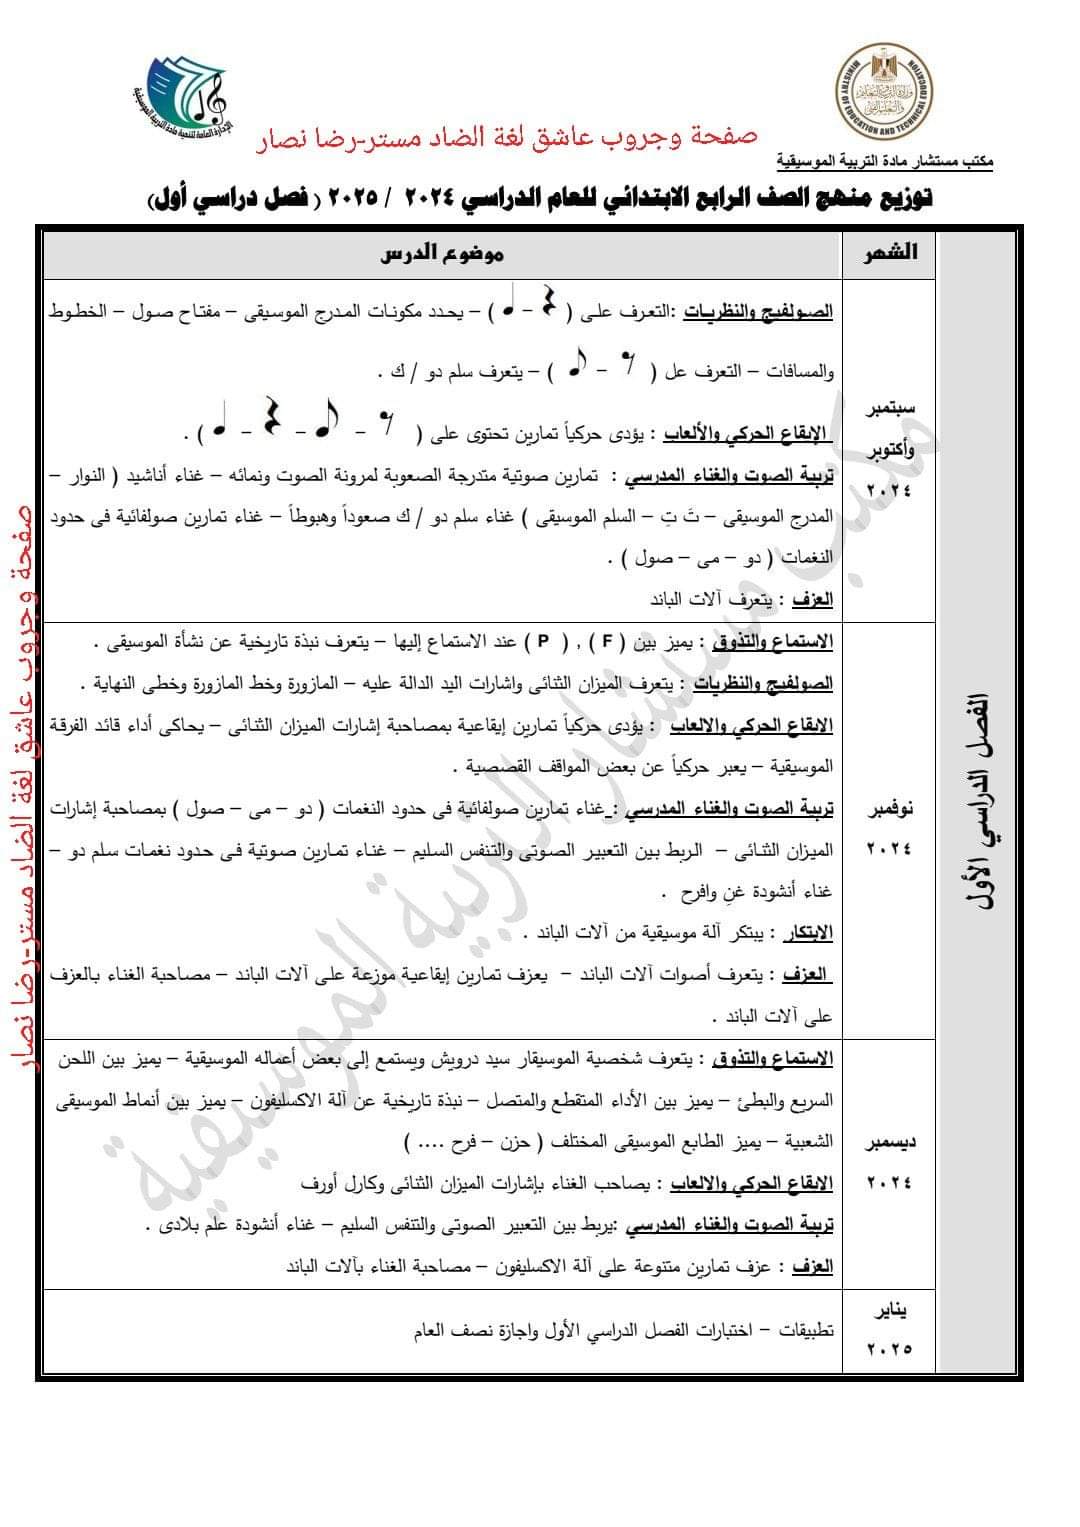 MINISTRY OF EDUCATION AND TECHNICAL EDUCATION
الإدارة العامة لتنمية مادة التربية الموسيقية
صفحة وجروب عاشق لغة الضاد مستر-رضا نصار
مكتب مستشار مادة التربية الموسيقية
توزيع منهج الصف الرابع الابتدائي للعام الدراسي ٢٠٢٤ / ٢٠٢٥ ( فصل دراسي أول)
الشهر
موضوع الدرس
الفصل الدراسي الأول
سبتمبر
وأكتوبر
٢٠٢٤
الصولفيج والنظريات :التعرف على ( 𝄽 – ♩ ) – يحدد مكونات المدرج الموسيقى – مفتاح صول – الخطوط
والمسافات – التعرف عل ( 𝄾 – ♪ ) – يتعرف سلم دو / ك .
الإيقاع الحركي والألعاب : يؤدى حركياً تمارين تحتوى على ( 𝄾 – ♪ – 𝄽 – ♩ ) .
تربية الصوت والغناء المدرسي : تمارين صوتية متدرجة الصعوبة لمرونة الصوت ونمائه – غناء أناشيد ( النوار –
المدرج الموسيقى – تَ تِ – السلم الموسيقى ) غناء سلم دو / ك صعوداً وهبوطاً – غناء تمارين صولفائية فى حدود
النغمات ( دو – مى – صول ) .
العزف : يتعرف آلات الباند
نوفمبر
٢٠٢٤
الاستماع والتذوق : يميز بين ( F ) , ( P ) عند الاستماع إليها – يتعرف نبذة تاريخية عن نشأة الموسيقى .
الصولفيج والنظريات : يتعرف الميزان الثنائى واشارات اليد الدالة عليه – المازورة وخط المازورة وخطى النهاية .
الايقاع الحركي والالعاب : يؤدى حركياً تمارين إيقاعية بمصاحبة إشارات الميزان الثنائى – يحاكى أداء قائد الفرقة
الموسيقية – يعبر حركياً عن بعض المواقف القصصية .
تربية الصوت والغناء المدرسي : غناء تمارين صولفائية فى حدود النغمات ( دو – مى – صول ) بمصاحبة إشارات
الميزان الثنائى – الربط بين التعبير الصوتى والتنفس السليم – غناء تمارين صوتية فى حدود نغمات سلم دو –
غناء أنشودة غنِ وافرح .
الابتكار : يبتكر آلة موسيقية من آلات الباند .
العزف : يتعرف أصوات آلات الباند – يعزف تمارين إيقاعية موزعة على آلات الباند – مصاحبة الغناء بالعزف
على آلات الباند .
ديسمبر
٢٠٢٤
الاستماع والتذوق : يتعرف شخصية الموسيقار سيد درويش ويستمع إلى بعض أعماله الموسيقية – يميز بين اللحن
السريع والبطئ – يميز بين الأداء المتقطع والمتصل – نبذة تاريخية عن آلة الاكسليفون – يميز بين أنماط الموسيقى
الشعبية – يميز الطابع الموسيقى المختلف ( حزن – فرح .... )
الايقاع الحركي والالعاب : يصاحب الغناء بإشارات الميزان الثنائى وكارل أورف
تربية الصوت والغناء المدرسي :يربط بين التعبير الصوتى والتنفس السليم – غناء أنشودة علم بلادى .
العزف : عزف تمارين متنوعة على آلة الاكسليفون – مصاحبة الغناء بآلات الباند
يناير
٢٠٢٥
تطبيقات – اختبارات الفصل الدراسي الأول واجازة نصف العام
صفحة وجروب عاشق لغة الضاد مستر-رضا نصار
مكتب مستشار التربية الموسيقية